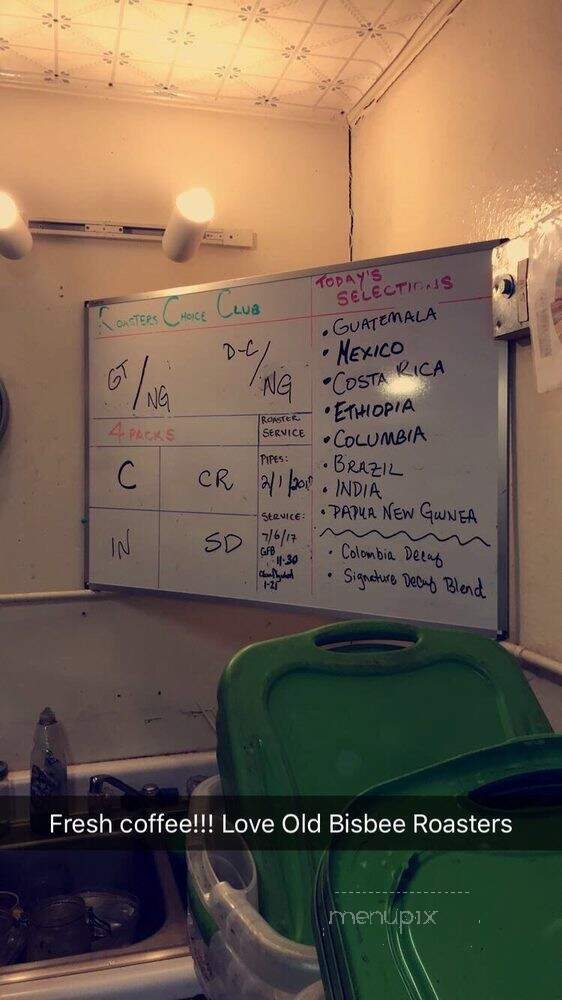 ROASTERS CHOICE CLUB
GT/NG
D-C/NG
4 PACKS
C
CR
IN
SD
ROASTER
SERVICE
PIPES:
SERVICE:
7/6/17
GFB
11-30
1-21
TODAY'S
SELECTIONS
• GUATEMALA
• MEXICO
• COSTA RICA
• ETHIOPIA
• COLUMBIA
• BRAZIL
• INDIA
• PAPUA NEW GUINEA
• Colombia Decaf
• Signature Decaf Blend
Fresh coffee!!! Love Old Bisbee Roasters
menupix